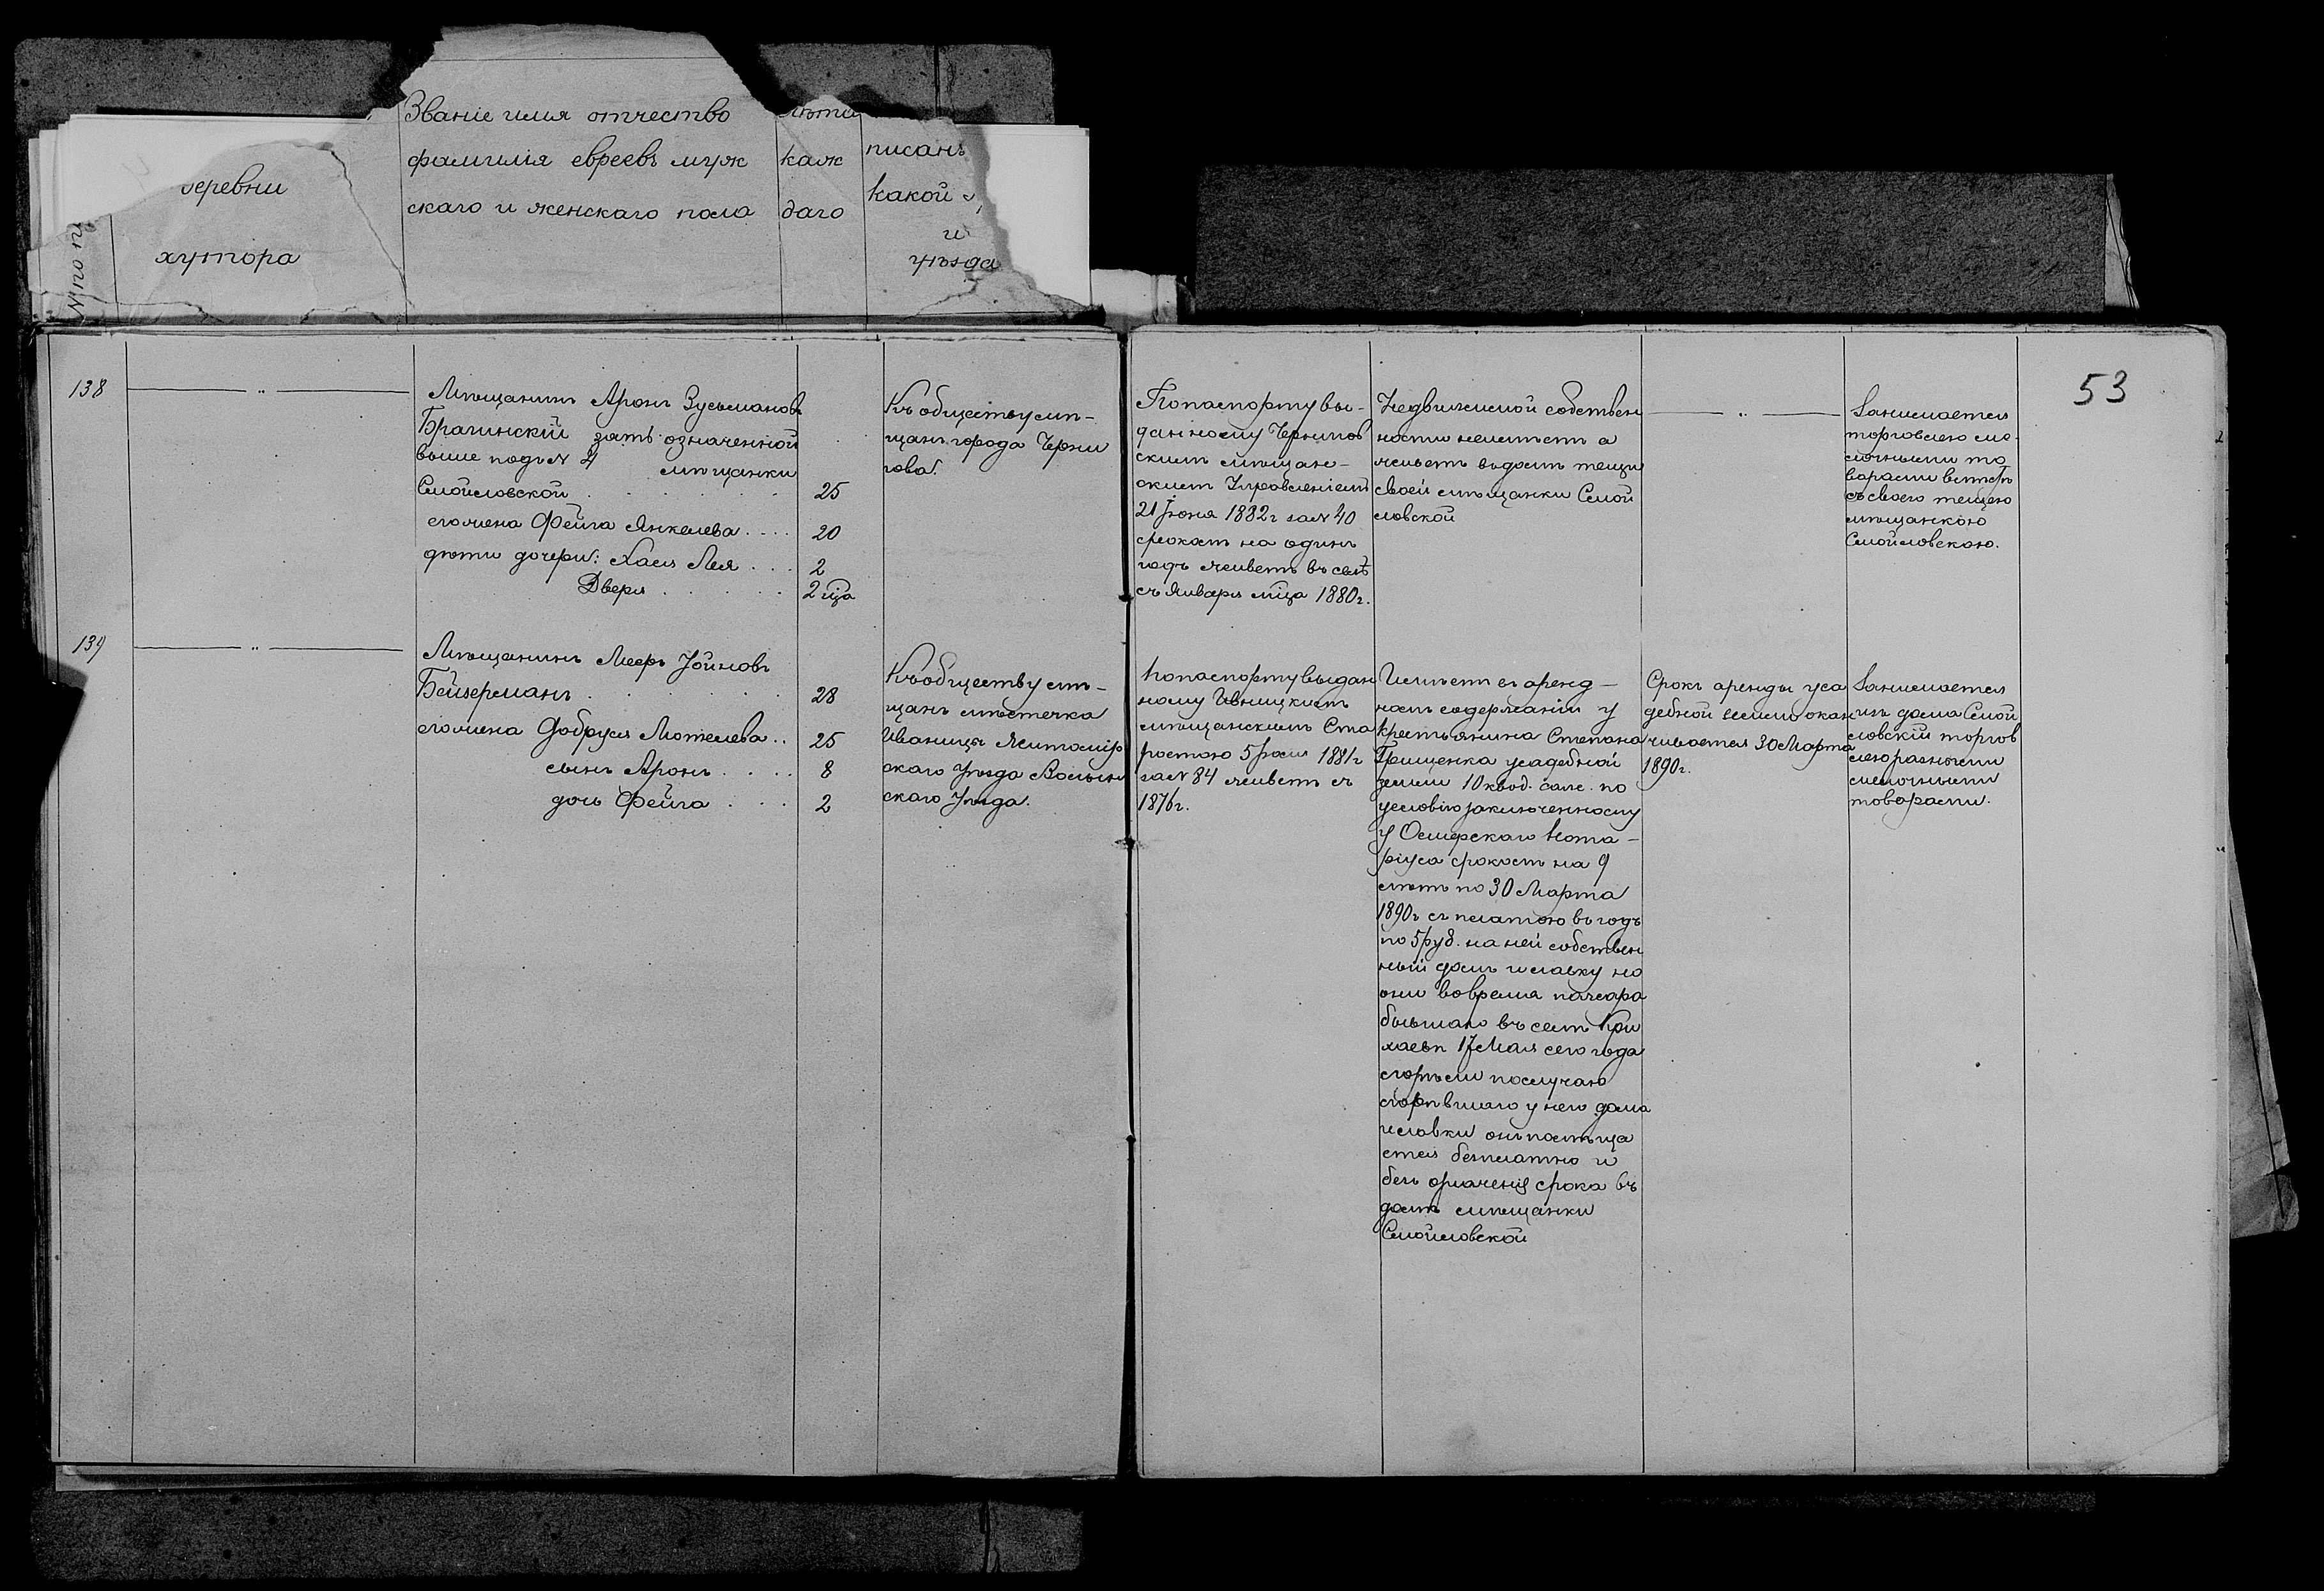 Званіе имя отчество
фамилія евреевъ муж
скаго и женскаго пола
лѣта
каж
даго
писанъ
какой
и
уѣзда
деревни
хутора
№ по
53
138
Мѣщанинъ Аронъ Зусьмановъ
Брагинскій зять означенной
выше подъ № 4 мѣщанки
Смойловской
25
его жена Фейга Янкелева
20
дѣти дочери: Хася Лея
2
Двера
2 мца
Къ обществу мѣ-
щанъ города Черни
гова.
По паспорту вы-
данному Чернигов
скимъ мѣщан-
скимъ Управленіемъ
21 Іюня 1882 г за № 40
срокомъ на одинъ
годъ живетъ въ селѣ
съ Января мца 1880 г.
Недвижимой собствен
ности неимѣетъ а
живетъ въ домѣ тещи
своей мѣщанки Смой
ловской
Занимается
торговлею ме-
лочными то
варами вмѣстѣ
съ своею тещею
мѣщанкою
Смойловскою.
139
Мѣщанинъ Мееръ Іойновъ
Бейзерманъ
28
его жена Добруся Мотелева
25
сынъ Аронъ
8
дочь Фейга
2
Къ обществу мѣ-
щанъ мѣстечка
Иваницы Житомір
скаго Уѣзда Волын
скаго Уѣзда.
По паспорту выдан
ному Ивницкимъ
мѣщанскимъ Ста
ростою 1881 г
за № 84 живетъ съ
1876 г.
Имѣетъ въ аренд-
номъ содержаніи у
крестьянина Степана
Грищенка усадебной
земли 10 квад. саж. по
условію заключенному
у Остерскаго Нота-
ріуса срокомъ на 9
лѣтъ по 30 Марта
1890 г съ платою въ годъ
по 5 руб. на ней собствен
ный домъ и лавку но
они во время пожара
бывшаго въ селѣ Кри
хаевѣ 17 Мая сего года
сгорѣли по случаю
сгорѣвшаго у него дома
и лавки онъ помѣща
ется безплатно и
безъ означенія срока въ
домѣ мѣщанки
Смойловской
Срокъ аренды уса
дебной земли окан
чивается 30 Марта
1890 г.
Занимается
изъ дома Смой
ловскій торгов
лею разными
мелочными
товарами.